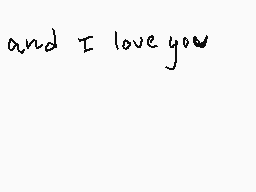 and I love you